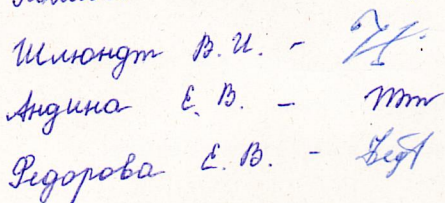 Шлюндт В. И. -
Андина Е. В. -
Федорова Е. В. -